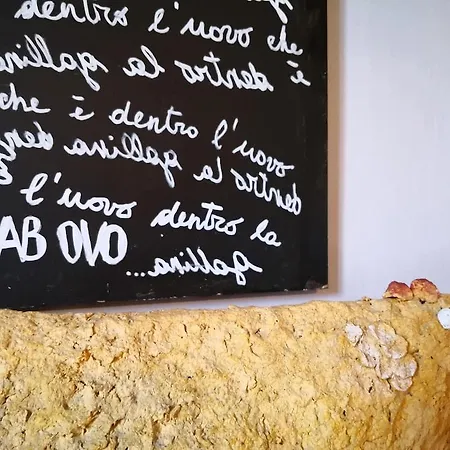 dentro l'uovo che
è dentro la gallin
che è dentro l'uovo
dentro la gallina den
è l'uovo dentro la
AB OVO gallina...